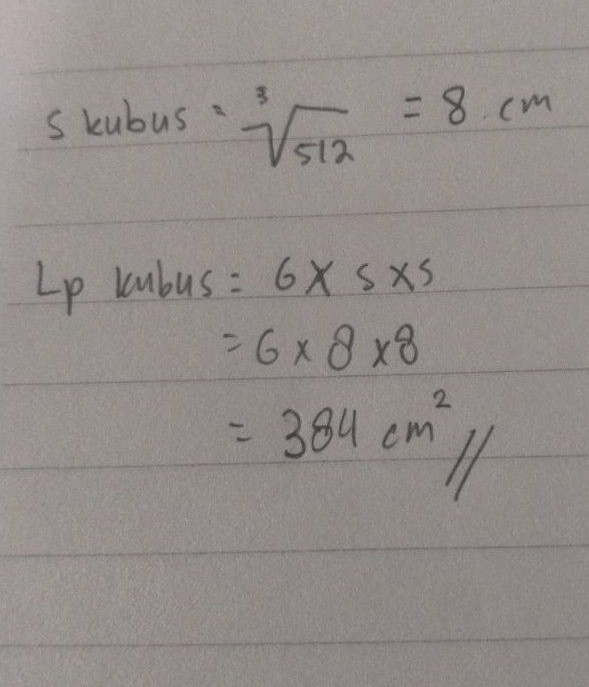 S kubus = ³√512 = 8 cm
Lp kubus = 6 x s x s
= 6 x 8 x 8
= 384 cm² //